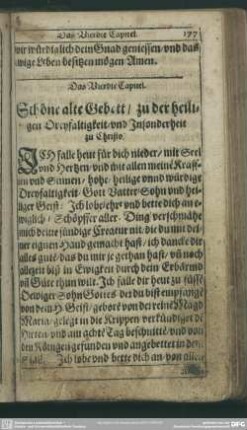 Das Vierdte Capitel. 177
wir würdiglich dein Gnad geniessen/ vnd das
ewige Leben besitzen mögen Amen.
Das Vierdte Capitel.
Schöne alte Gebett/ zu der heili-
gen Dreyfaltigkeit/ vnd Insonderheit
zu Christo.
ICH falle heut für dich nieder/ mit Seel
vnd Hertzen/ vnd mit allen meinē Kräff-
ten vnd Sinnen/ hohe/ heilige vnnd würdige
Dreyfaltigkeit/ Gott Vatter Sohn vnd hei-
liger Geist: Ich lobe/ehr/ vnd bette dich an e-
wiglich/ Schöpffer aller Ding/ verschmähe
mich deine sündige Creatur nit/ die du mit dei-
ner eignen Hand gemacht hast/ ich dancke dir
alles guts/ das du mir je gethan hast/ vñ noch
allzeit biß in Ewigkeit durch dein Erbärmd
vñ Güte thun wilt. Ich falle dir heut zu füssē
O ewiger Sohn Gottes der du bist empfangē
von dem H. Geist/ geborē von der reinē Magd
Maria/ gelegt in die Krippen/ verkündiget dē
Hirten/ vnd am achtē Tag beschnittē/ vnd von
den Königen gefunden vnd angebettet in dem
Stall. Ich lobe vnd bette dich an/ von allen